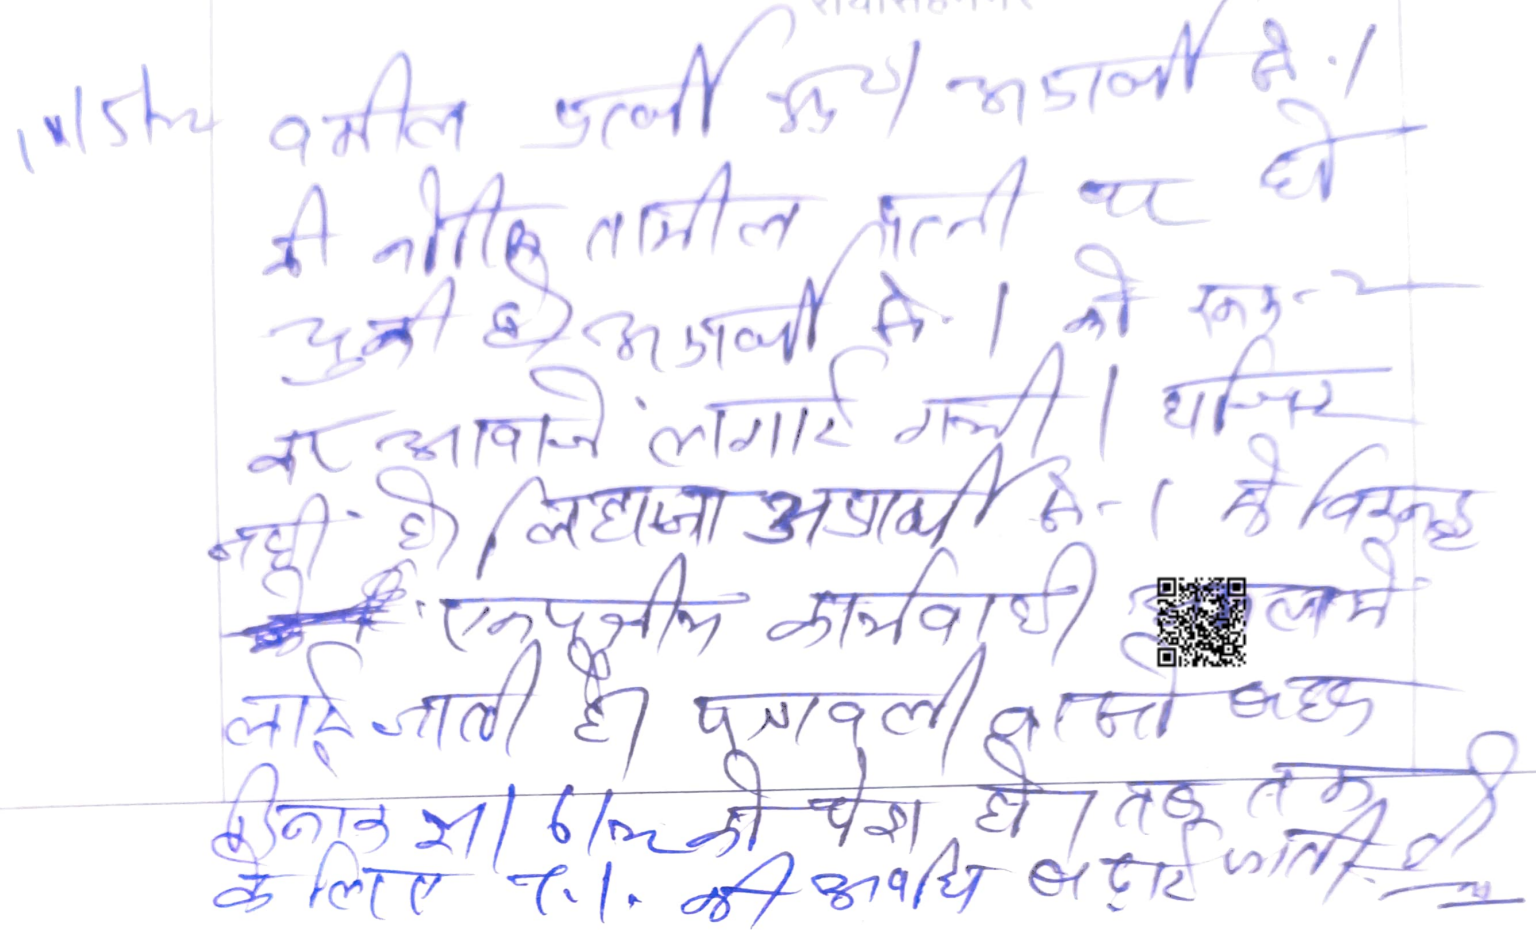 वकील प्रार्थी उप। अप्रार्थी सं. 1
की नोटिस तामील प्राप्त हो
चुकी है अप्रार्थी सं. 1 को
कर आवाजें लगाई गयी। हाजिर
नहीं है। लिहाजा अप्रार्थी सं. 1 के विरुद्ध
एकपक्षीय कार्यवाही अमल में
लाई जाती है। पत्रावली वास्ते बहस
दिनांक को पेश हो। तब तक
के लिए T.I. की अवधि बढ़ाई जाती है।